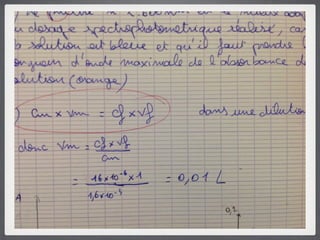 dosage spectrophotométrique réalisé, car
solution est bleue et qu'il faut prendre l
d'onde maximale de l'absorbance d
solution (orange)
) Cm × Vm = Cf × Vf dans une dilution
donc Vm = Cf × Vf
Cm
= 16×10⁻⁶ × 1 = 0,01 L
1,6×10⁻³
A
0,1